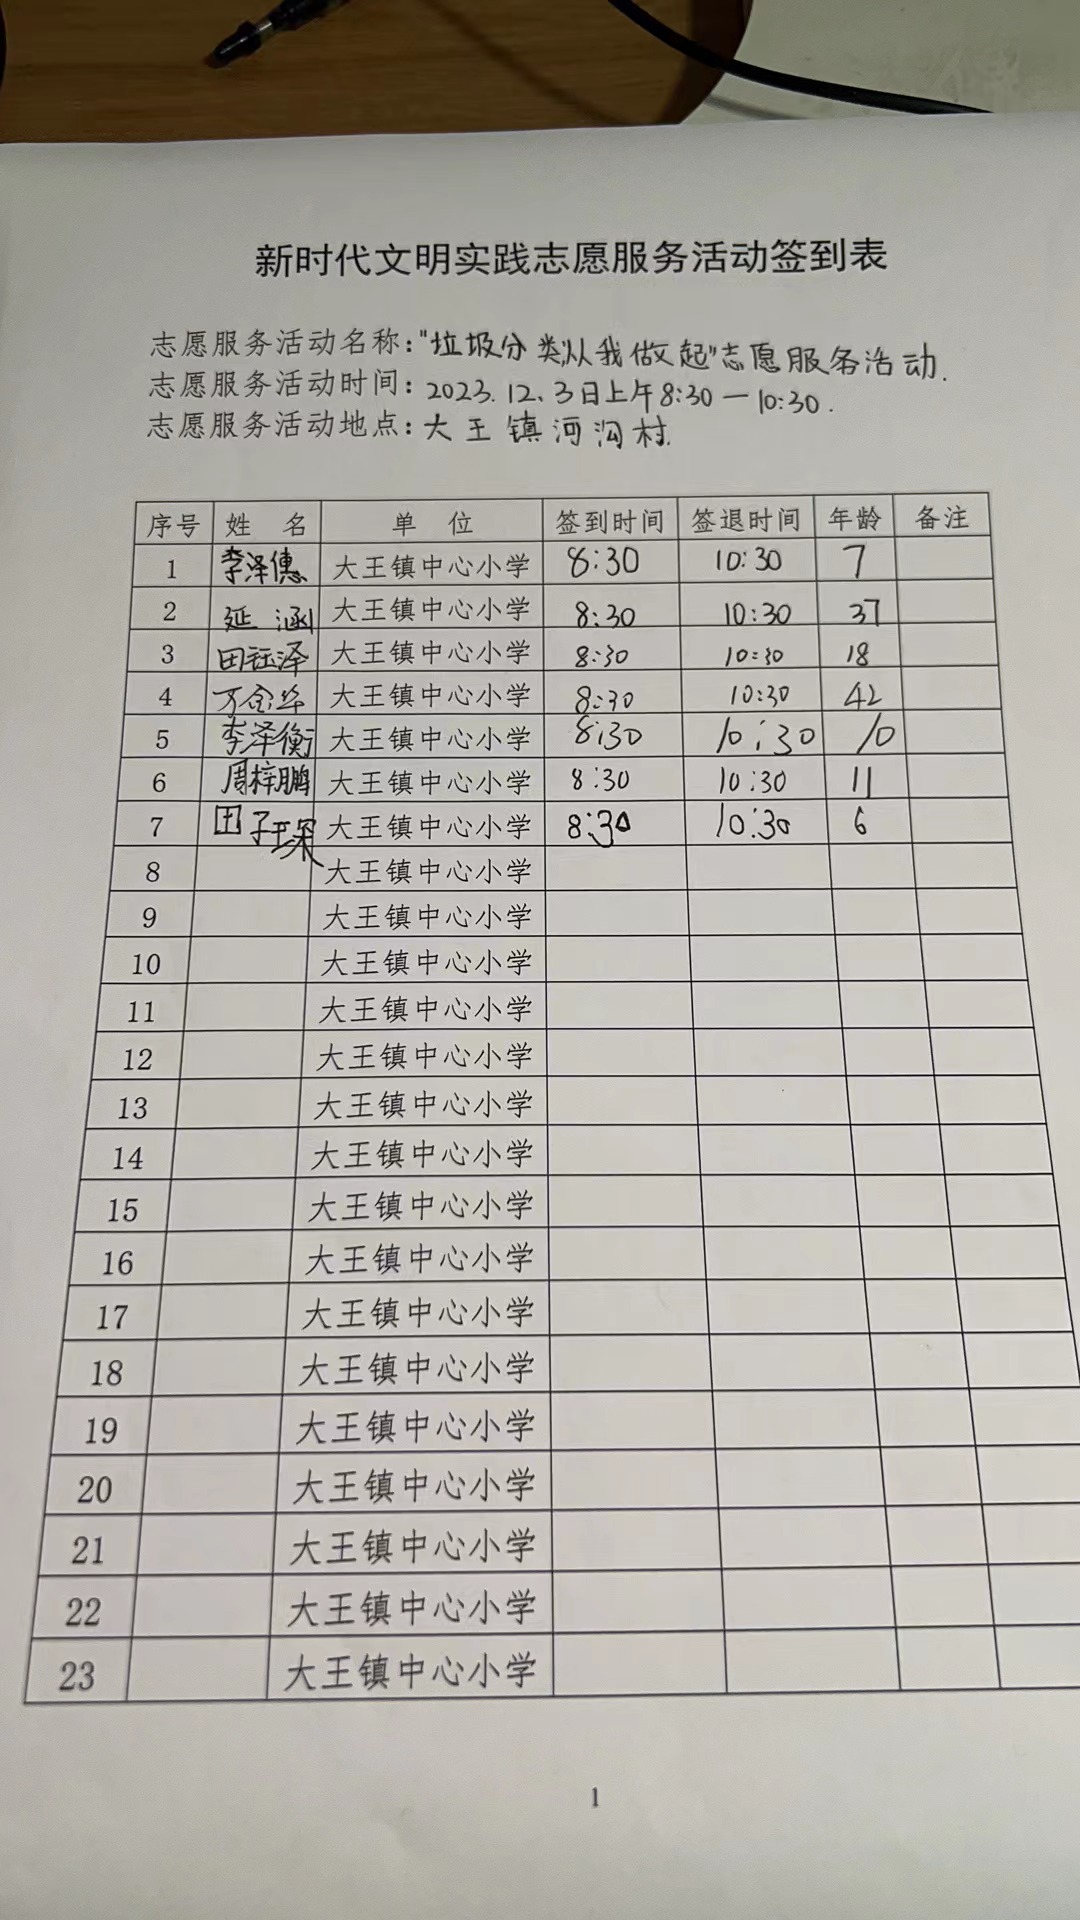 新时代文明实践志愿服务活动签到表
志愿服务活动名称："垃圾分类,从我做起"志愿服务活动.
志愿服务活动时间：2023.12.3日上午8:30—10:30.
志愿服务活动地点：大王镇河沟村.
序号 姓 名 单 位 签到时间 签退时间 年龄 备注
1 李泽 大王镇中心小学 8:30 10:30 7
2 延涵 大王镇中心小学 8:30 10:30 37
3 田钰泽 大王镇中心小学 8:30 10:30 18
4 万金华 大王镇中心小学 8:30 10:30 42
5 李泽衡 大王镇中心小学 8:30 10:30 10
6 周梓鹏 大王镇中心小学 8:30 10:30 11
7 田子琛 大王镇中心小学 8:30 10:30 6
8 大王镇中心小学
9 大王镇中心小学
10 大王镇中心小学
11 大王镇中心小学
12 大王镇中心小学
13 大王镇中心小学
14 大王镇中心小学
15 大王镇中心小学
16 大王镇中心小学
17 大王镇中心小学
18 大王镇中心小学
19 大王镇中心小学
20 大王镇中心小学
21 大王镇中心小学
22 大王镇中心小学
23 大王镇中心小学
1